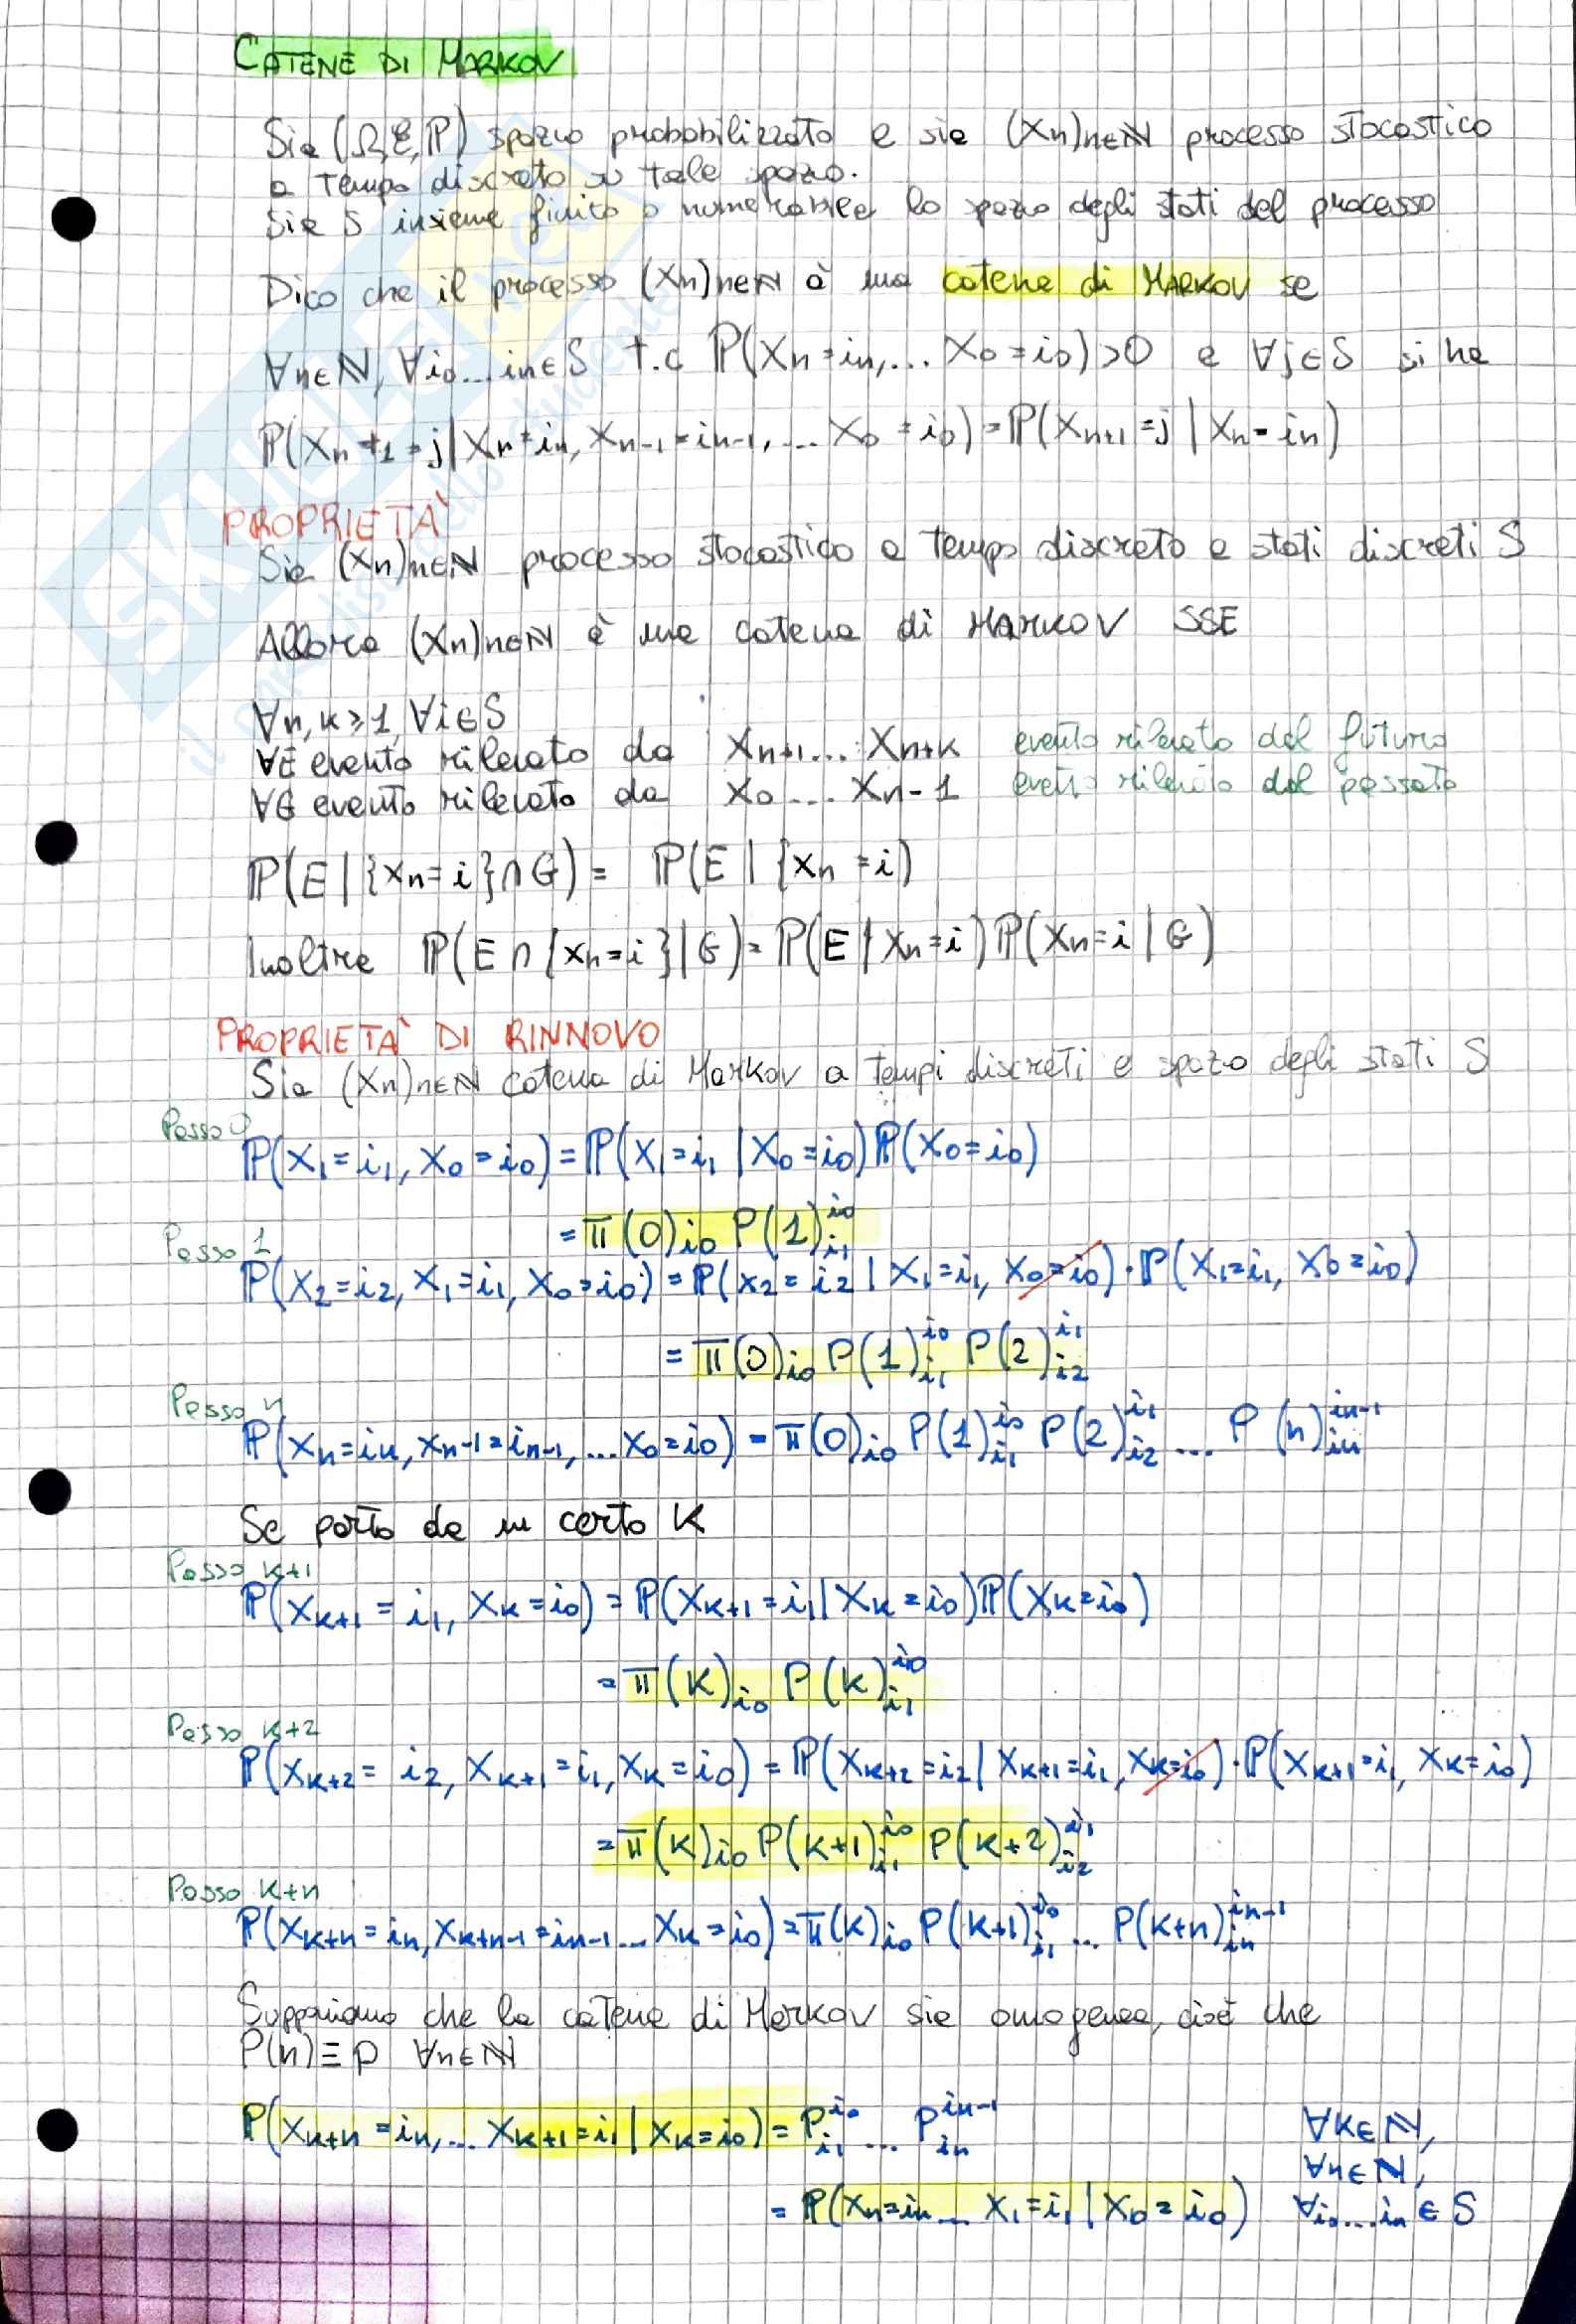 CATENE DI MARKOV
Sia (Ω, E, ℙ) spazio probabilizzato e sia (Xn)n∈ℕ processo stocastico
a tempo discreto su tale spazio.
Sia S insieme finito o numerabile lo spazio degli stati del processo
Dico che il processo (Xn)n∈ℕ è una catena di MARKOV se
∀n∈ℕ, ∀i₀...in∈S t.c ℙ(Xn=in,... X₀=i₀)>0 e ∀j∈S si ha
ℙ(Xn+1=j|Xn=in, Xn-1=in-1,... X₀=i₀)=ℙ(Xn+1=j|Xn=in)
PROPRIETÀ
Sia (Xn)n∈ℕ processo stocastico a tempo discreto e stati discreti S
Allora (Xn)n∈ℕ è una catena di MARKOV SSE
∀n,k≥1, ∀i∈S
∀E evento rilevato da Xn+1... Xn+k evento rilevato dal futuro
∀G evento rilevato da X₀... Xn-1 evento rilevato dal passato
ℙ(E|{Xn=i}∩G) = ℙ(E|{Xn=i)
Inoltre ℙ(E∩{Xn=i}|G)=ℙ(E|Xn=i)ℙ(Xn=i|G)
PROPRIETÀ DI RINNOVO
Sia (Xn)n∈ℕ catena di Markov a tempi discreti e spazio degli stati S
Passo 0
ℙ(X₁=i₁, X₀=i₀)=ℙ(X₁=i₁|X₀=i₀)ℙ(X₀=i₀)
= π(0)i₀ P(1)^i₀_i₁
Passo 1
ℙ(X₂=i₂, X₁=i₁, X₀=i₀)=ℙ(X₂=i₂|X₁=i₁, X₀=i₀)·ℙ(X₁=i₁, X₀=i₀)
= π(0)i₀ P(1)^i₀_i₁ P(2)^i₁_i₂
Passo n
ℙ(Xn=in, Xn-1=in-1,... X₀=i₀) = π(0)i₀ P(1)^i₀_i₁ P(2)^i₁_i₂ ... P(n)^in-1_in
Se parto da un certo K
Passo k+1
ℙ(Xk+1=i₁, Xk=i₀)=ℙ(Xk+1=i₁|Xk=i₀)ℙ(Xk=i₀)
= π(k)i₀ P(k)^i₀_i₁
Passo k+2
ℙ(Xk+2=i₂, Xk+1=i₁, Xk=i₀)=ℙ(Xk+2=i₂|Xk+1=i₁, Xk=i₀)·ℙ(Xk+1=i₁, Xk=i₀)
= π(k)i₀ P(k+1)^i₀_i₁ P(k+2)^i₁_i₂
Passo k+n
ℙ(Xk+n=in, Xk+n-1=in-1... Xk=i₀)=π(k)i₀ P(k+1)^i₀_i₁ ... P(k+n)^in-1_in
Supponiamo che la catena di Markov sia omogenea, cioè che
P(n)≡P ∀n∈ℕ
ℙ(Xk+n=in,... Xk+1=i₁|Xk=i₀)=P^i₀_i₁ ... P^in-1_in ∀k∈ℕ,
∀n∈ℕ,
= ℙ(Xn=in... X₁=i₁|X₀=i₀) ∀i₀...in∈S
SKUOLA.net
il paradiso dello studente